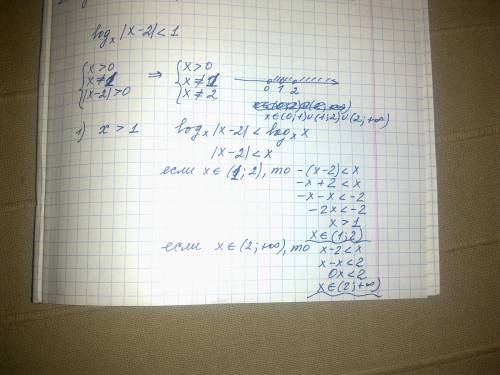 log_x |x-2| < 1
{ x>0 ; x≠1 ; |x-2|>0 ⇒ { x>0 ; x≠1 ; x≠2
0 1 2
x∈(0;1)∪(1;2)∪(2;+∞)
1) x>1 log_x |x-2| < log_x x
|x-2|<x
если x∈(1;2), то -(x-2)<x
-x+2<x
-x-x<-2
-2x<-2
x>1
x∈(1;2)
если x∈(2;+∞), то x-2<x
x-x<2
0x<2
x∈(2;+∞)